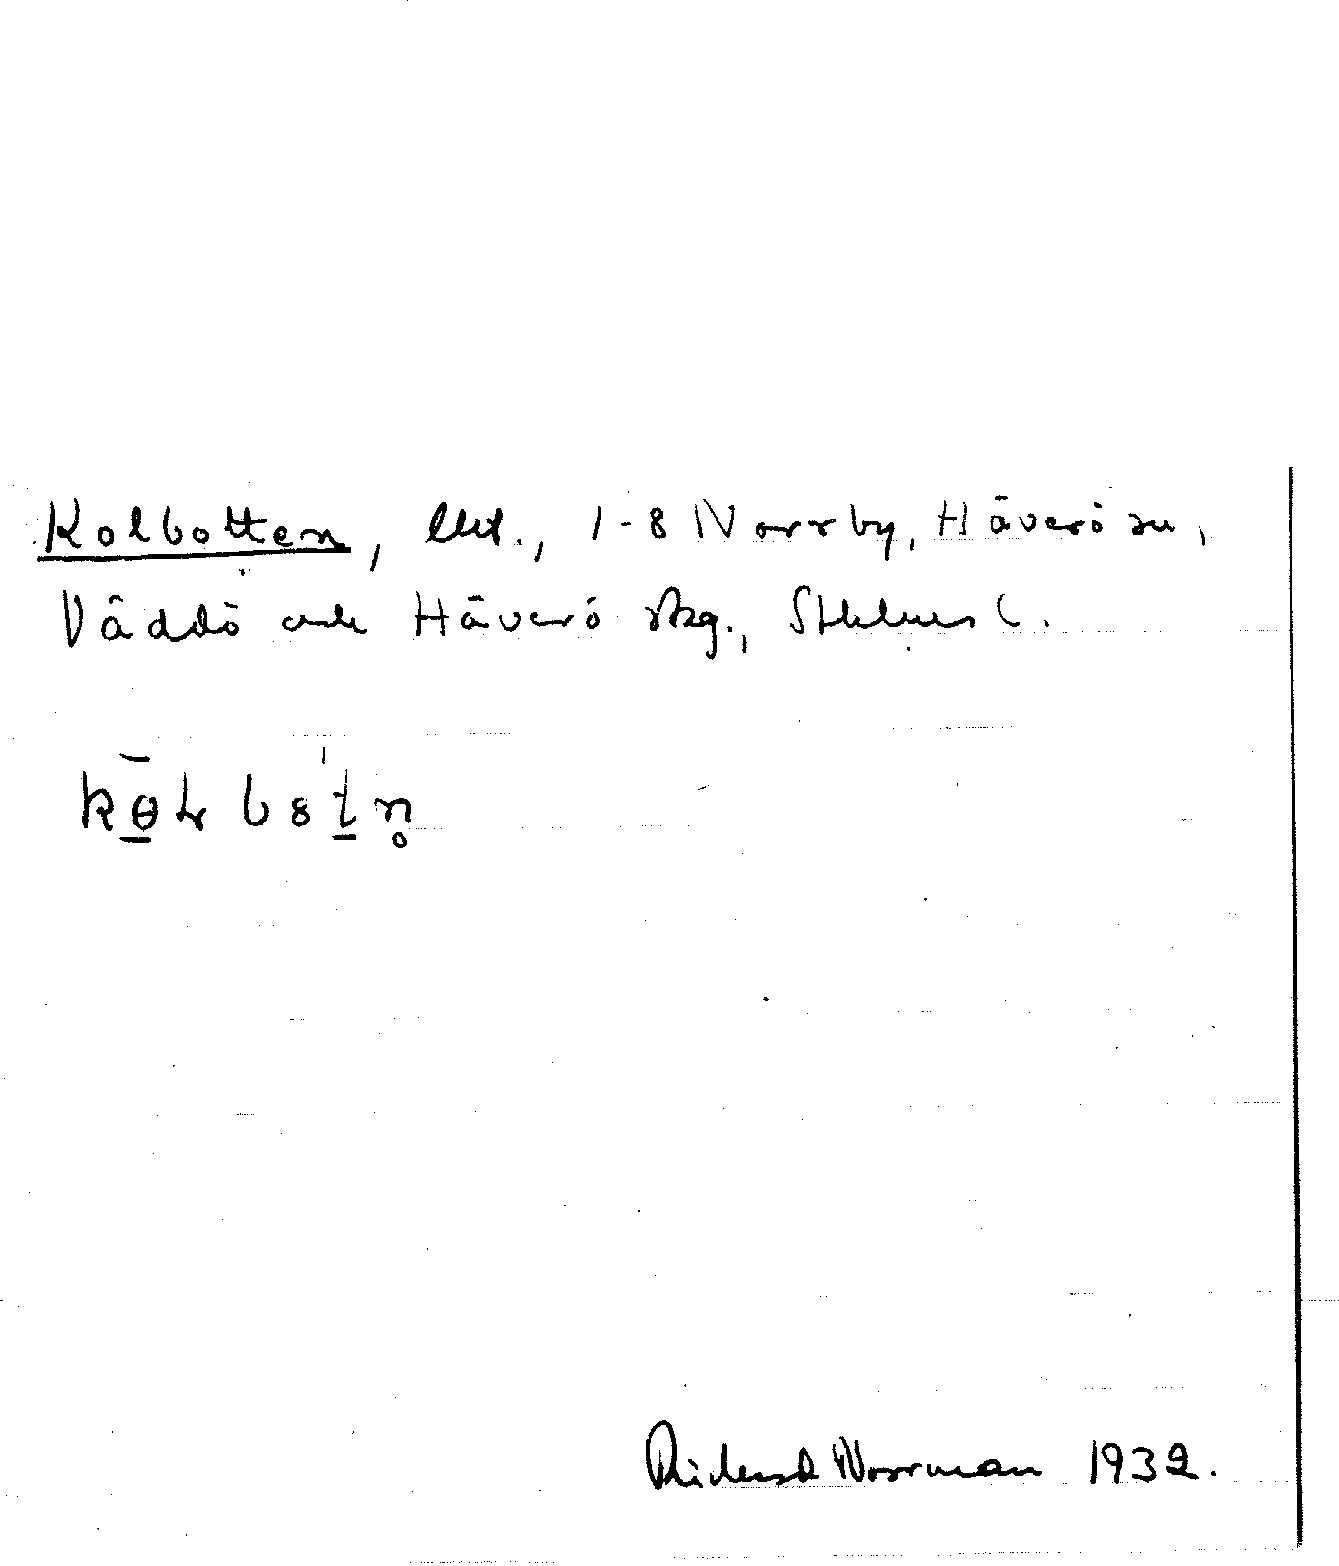 Kolbotten, lht., 1-8 Norrby, Häverö sn,
Väddö och Häverö skg., Sthlms l.
kɵ̄lbȣtn̥
Rickard Norrman 1932.